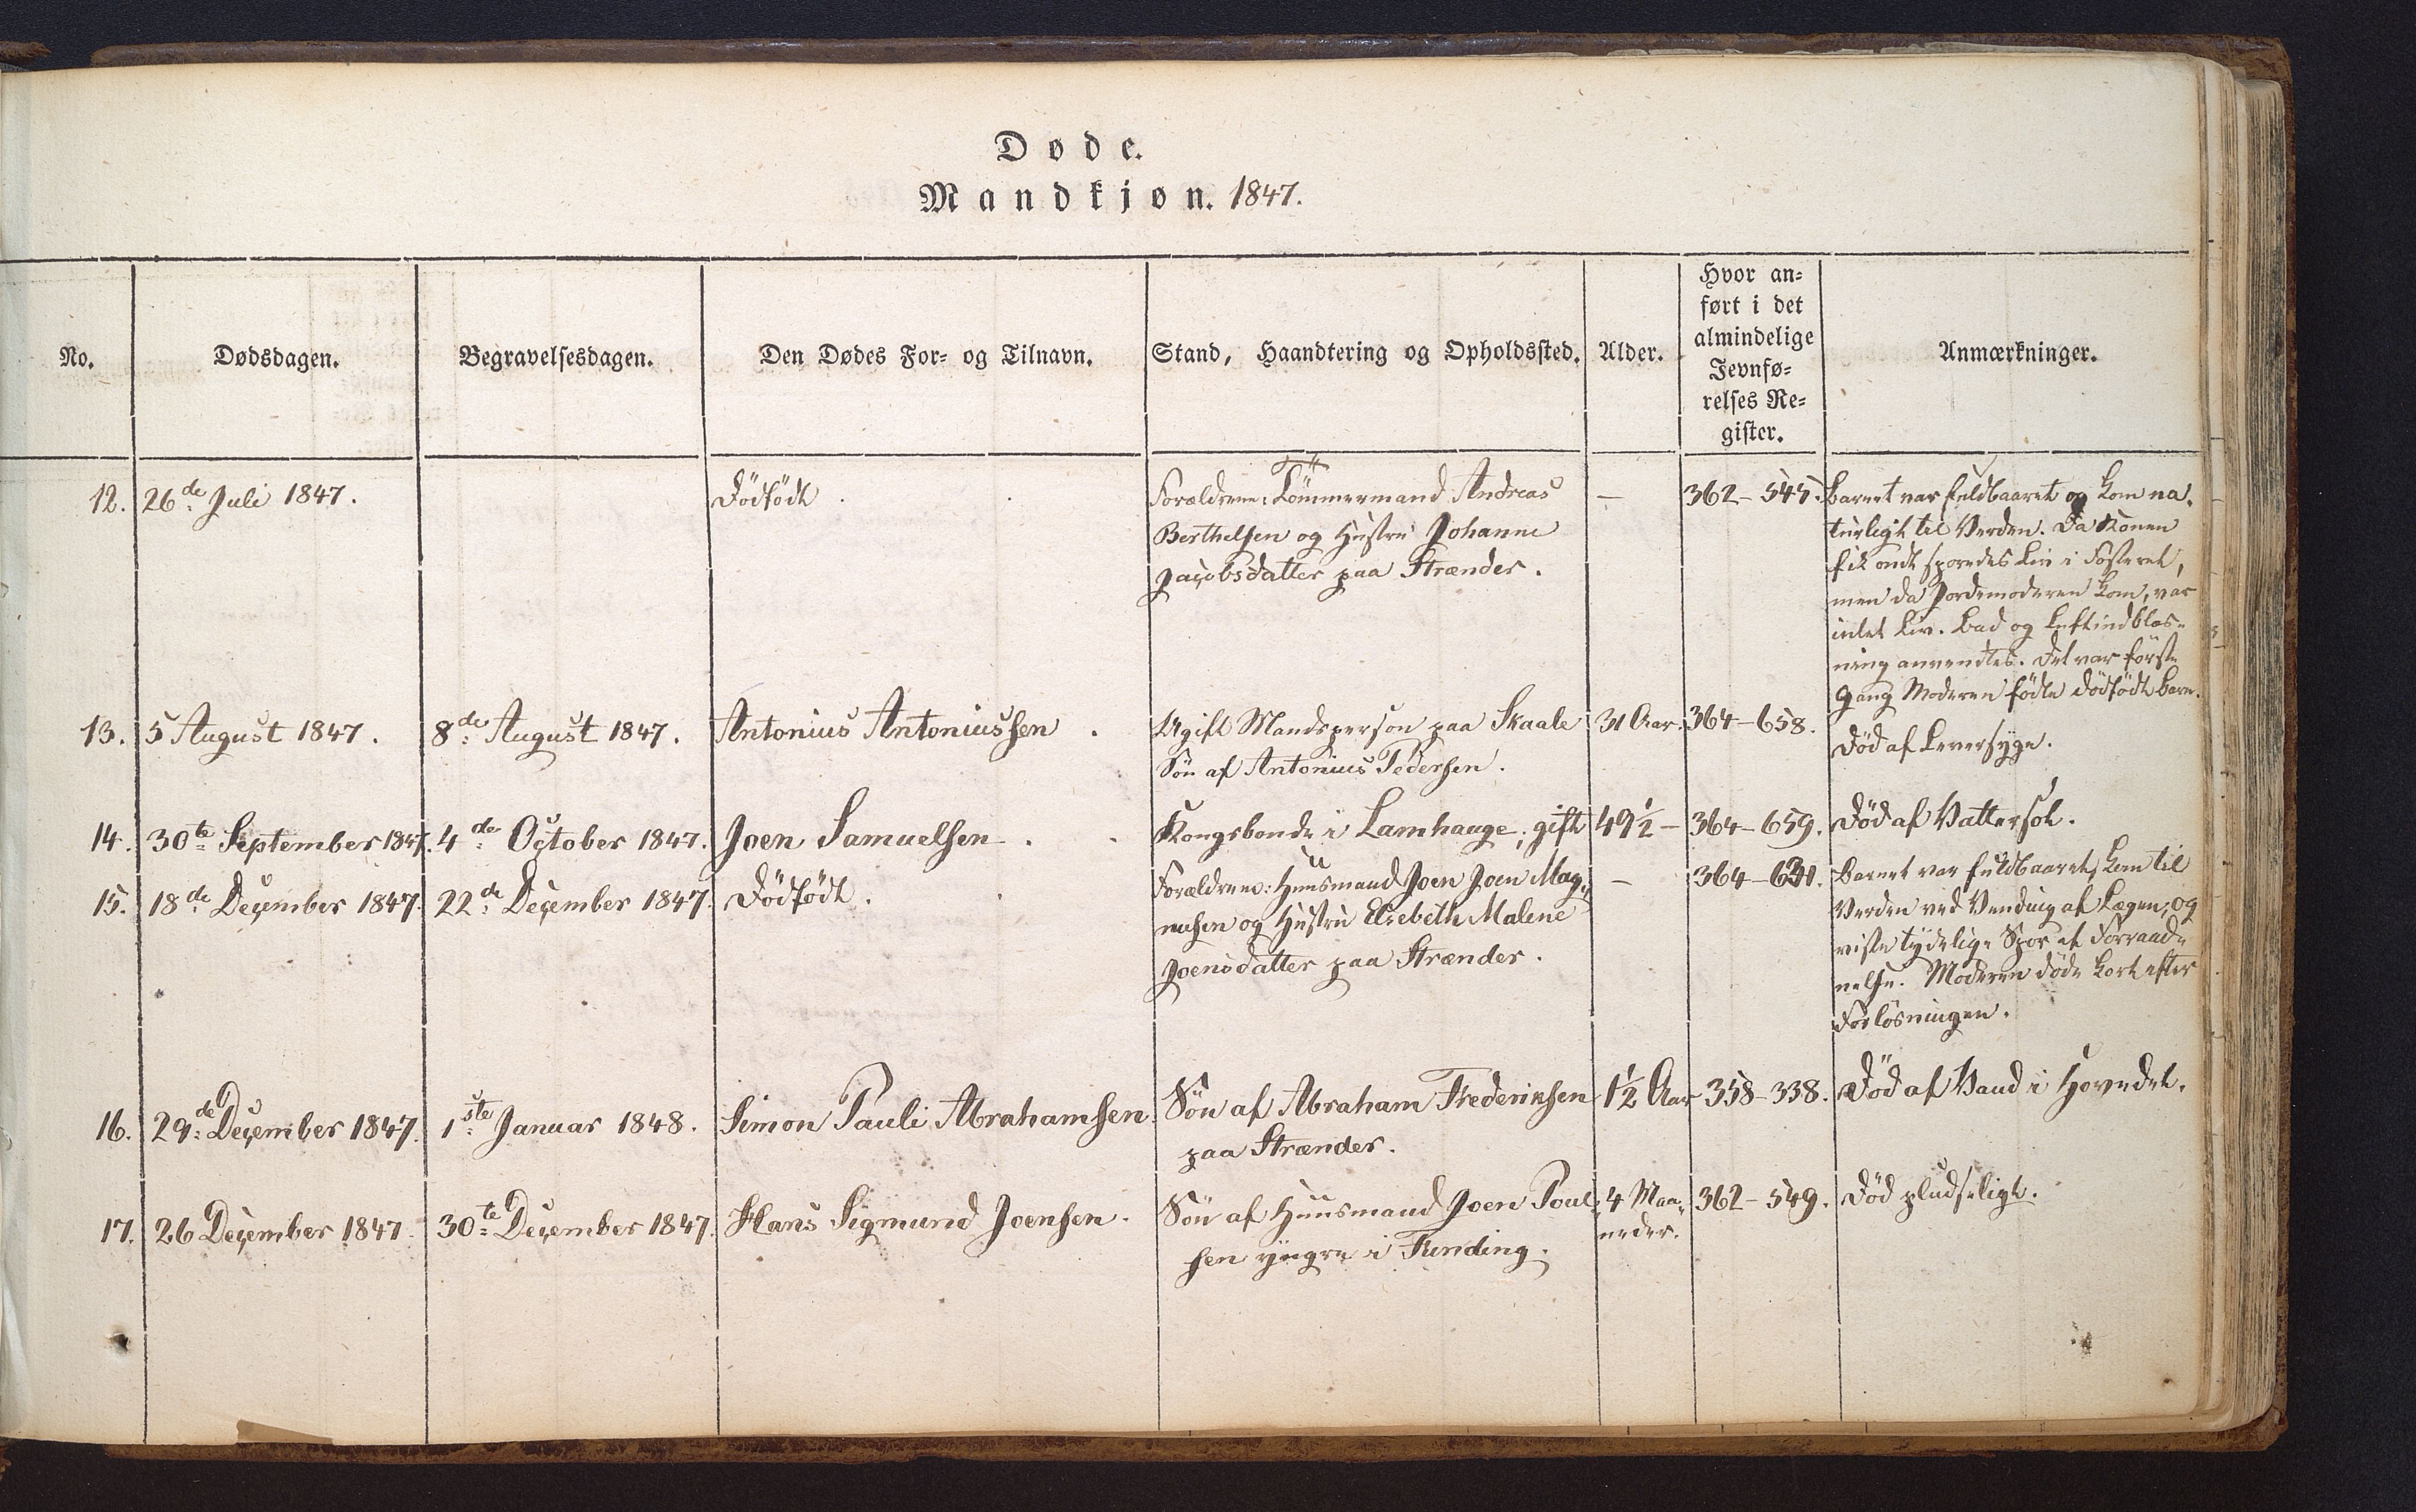 Døde.
Mandkjøn. 1847.
No.
Dødsdagen.
Begravelsesdagen.
Den Dødes For- og Tilnavn.
Stand, Haandtering og Opholdssted.
Alder.
Hvor an-
ført i det
almindelige
Jevnfø-
relses Re-
gister.
Anmærkninger.
12.
26de Juli 1847.
Dødfødt
Forældrene: Tömmermand Andreas
Berthelsen og Hustru Johanne
Jacobsdatter paa Strænder.
—
362-545.
Barnet var fuldbaaret og kom na-
turligt til Verden. Da Konen
fik ondt sporedes Liv i Fosteret,
men da Jordemoderen kom, var
intet Liv. Bad og Luftindblæs-
ning anvendtes. Det var første
Gang Moderen fødte dødfødt Barn.
13.
5 August 1847.
8de August 1847.
Antonius Antoniussen
Ugift Mandsperson paa Skaale
Sön af Antonius Pedersen.
31 Aar.
364-658.
Död af Leversyge.
14.
30te September 1847.
4de October 1847.
Joen Samuelsen
Kongsbonde i Lamhauge, gift
49½ —
364-659.
Död af Vattersot.
15.
18de December 1847.
22de December 1847.
Dödfödt.
Forældrene: Huusmand Joen Joen Mag-
nusen og Hustru Elsebeth Malene
Joensdatter paa Strænder.
—
364-
Barnet var fuldbaaret, kom til
Verden ved Vending af Lægen, og
viste tydelige Spor af Forraad-
nelse. Moderen döde kort efter
Forlösningen.
16.
29de December 1847.
1ste Januar 1848.
Simon Pauli Abrahamsen.
Sön af Abraham Frederiksen
paa Strænder.
1½ Aar
358-338.
Död af Vand i Hovedet.
17.
26 December 1847.
30te December 1847.
Hans Sigmund Joensen.
Sön af Huusmand Joen Poul-
sen yngre i Funding.
4 Maa-
neder.
362-549.
Död pludseligt.